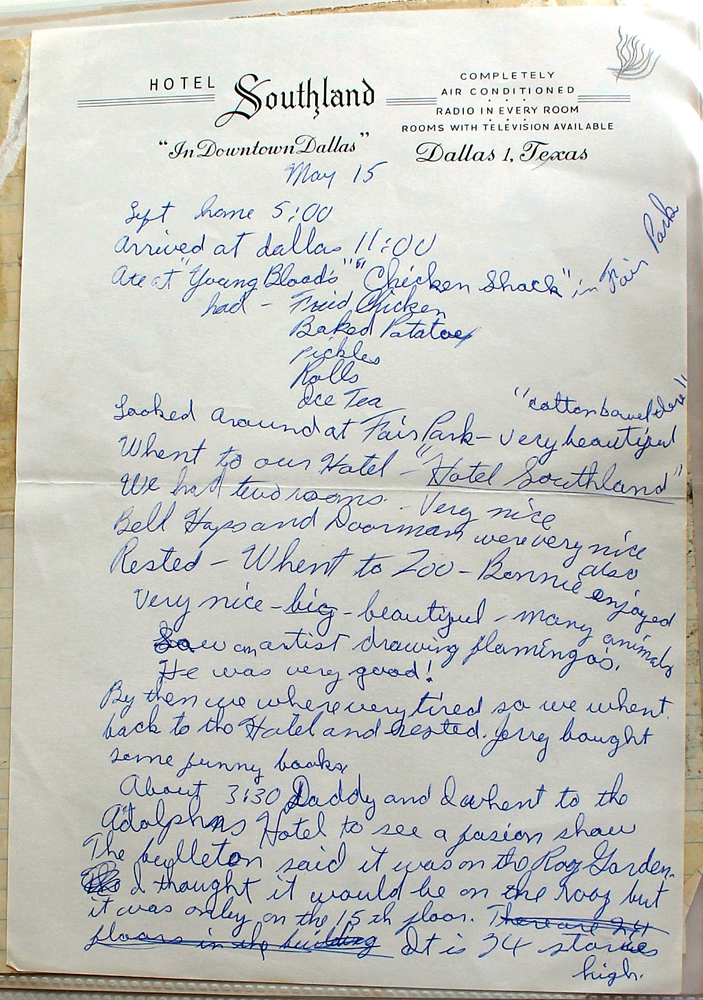 HOTEL Southland
"In Downtown Dallas"
COMPLETELY
AIR CONDITIONED
RADIO IN EVERY ROOM
ROOMS WITH TELEVISION AVAILABLE
Dallas 1, Texas
May 15
Left home 5:00
Arrived at dallas 11:00
Ate at "Young Blood's" "Chicken Shack" in Fair Park
had - Fried Chicken
Baked Potatoe
Pickles
Rolls
Ice Tea
"cotton bowl
Looked around at Fair Park - very beautiful
Whent to our Hotel - "Hotel Southland"
We had two rooms - Very nice
Bell Hops and Doorman were very nice
also
Rested - Whent to Zoo - Bonnie enjoyed
Very nice - big - beautiful - many animals
Saw an artist drawing flamingos.
He was very good!
By then we where very tired so we whent
back to the Hotel and rested. Jerry bought
some funny books
About 3:30 Daddy and I whent to the
Adolphus Hotel to see a fasion show
The bulleton said it was on the Roof Garden.
I thought it would be on the roof but
it was only on the 15th floor. There are 24
floors in the building It is 24 stories
high.